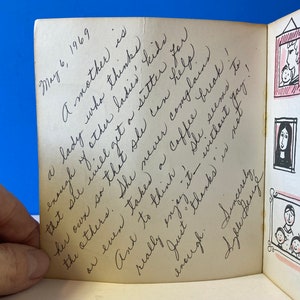 May 6, 1969
A mother is
a lady who thinks kids
enough of other ladies' kids
that she will get a sitter for
her own so that she can help
the others. She never complains
or even takes a coffee break!
And to think - She seems to
really enjoy it without pay!
Just thanks is not
enough.
Sincerely